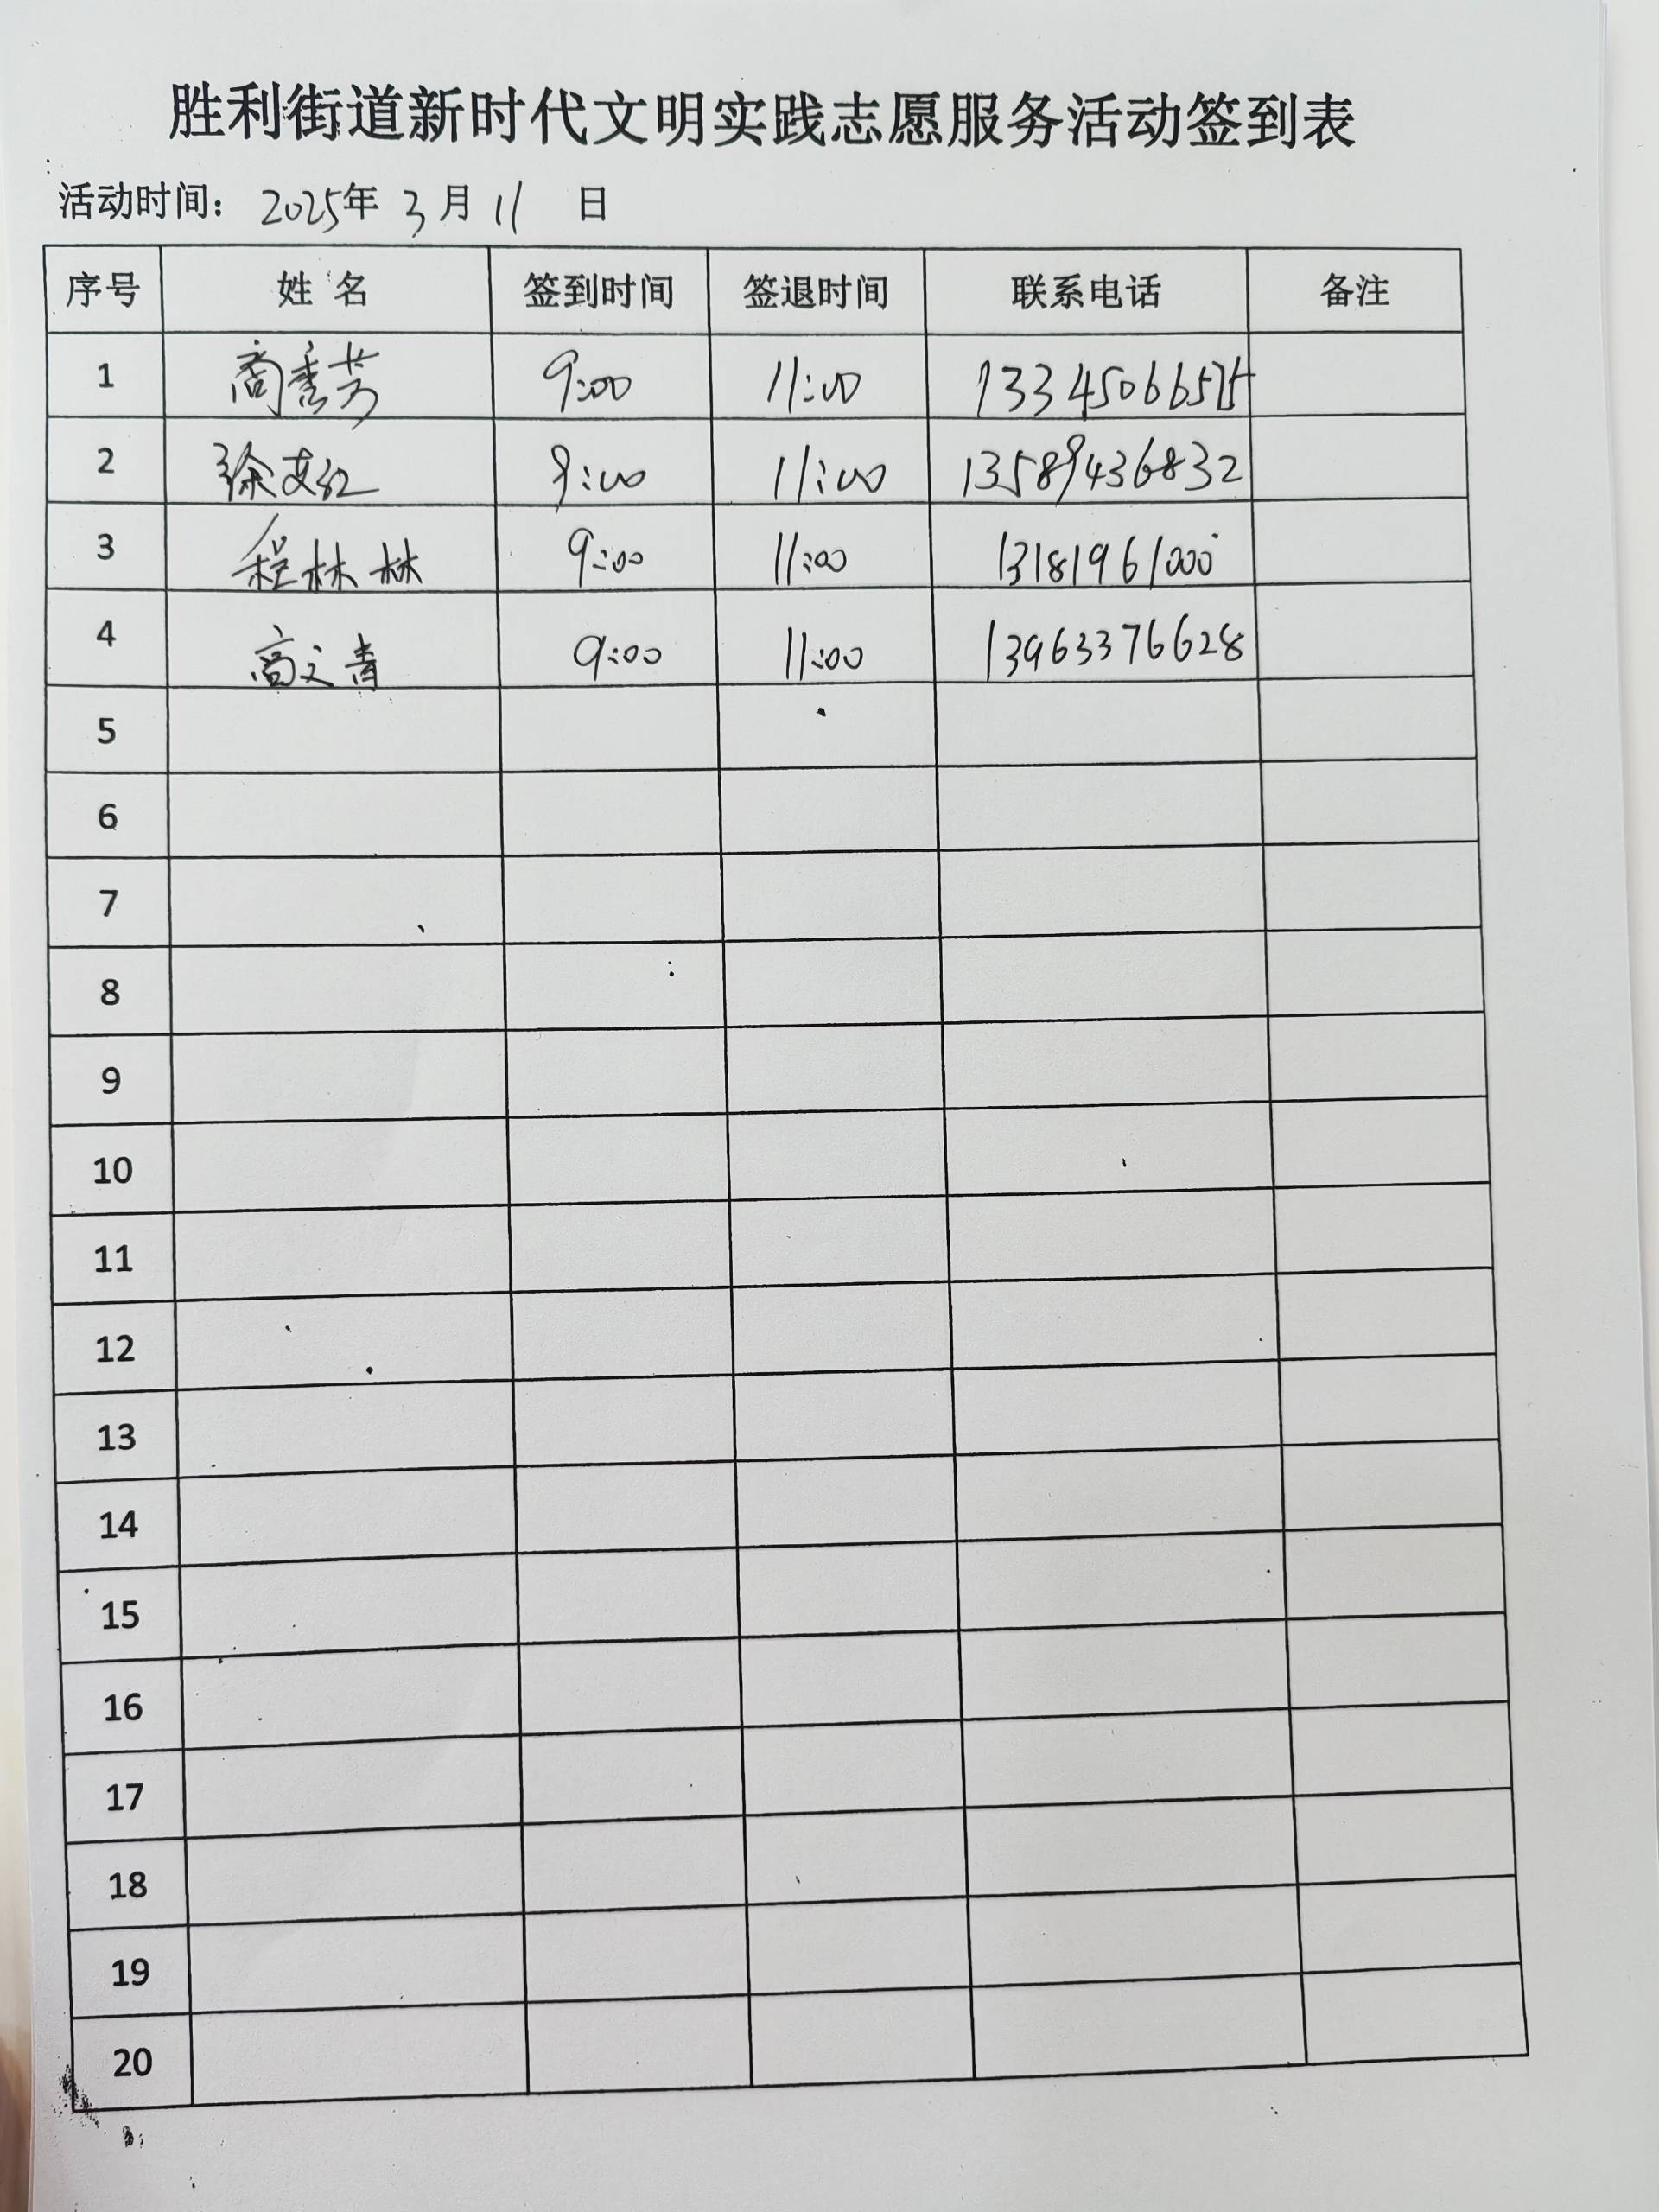 胜利街道新时代文明实践志愿服务活动签到表
活动时间: 2025年 3月 11 日
序号 姓名 签到时间 签退时间 联系电话 备注
1 商秀芳 9:00 11:00
2 徐艾红 9:00 11:00 13589436832
3 程林林 9:00 11:00 13181961000
4 高文青 9:00 11:00 13963376628
5
6
7
8
9
10
11
12
13
14
15
16
17
18
19
20